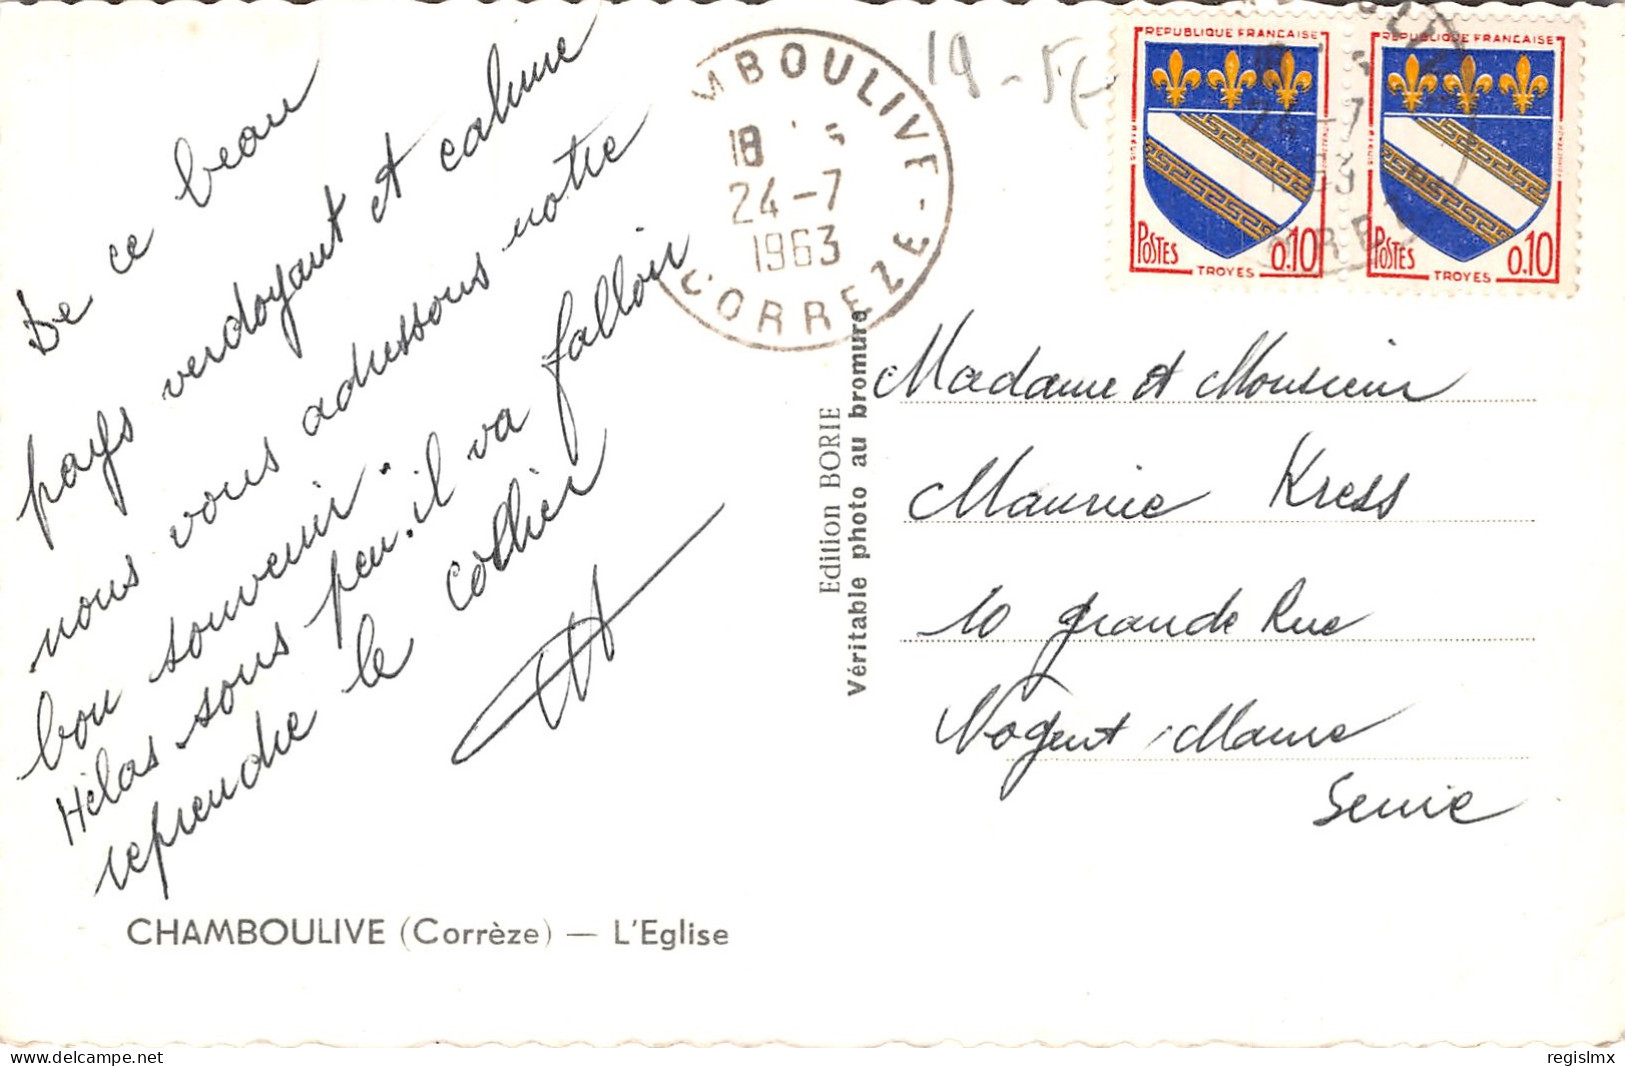 De ce beau
pays verdoyant et calme
nous vous adressons notre
bon souvenir.
Hélas sous peu. il va falloir
reprendre le collier
CHAMBOULIVE (Corrèze) — L'Eglise
MBOULIVE
18
24-7
1963
CORREZE
19
Edition BORIE
Véritable photo au bromure
REPUBLIQUE FRANCAISE
POSTES
0.10
TROYES
REPUBLIQUE FRANCAISE
POSTES
0.10
TROYES
Madame et Monsieur
Maurice Kress
10 grande Rue
Nogent s/Marne
Seine
regislmx
delcampe.net